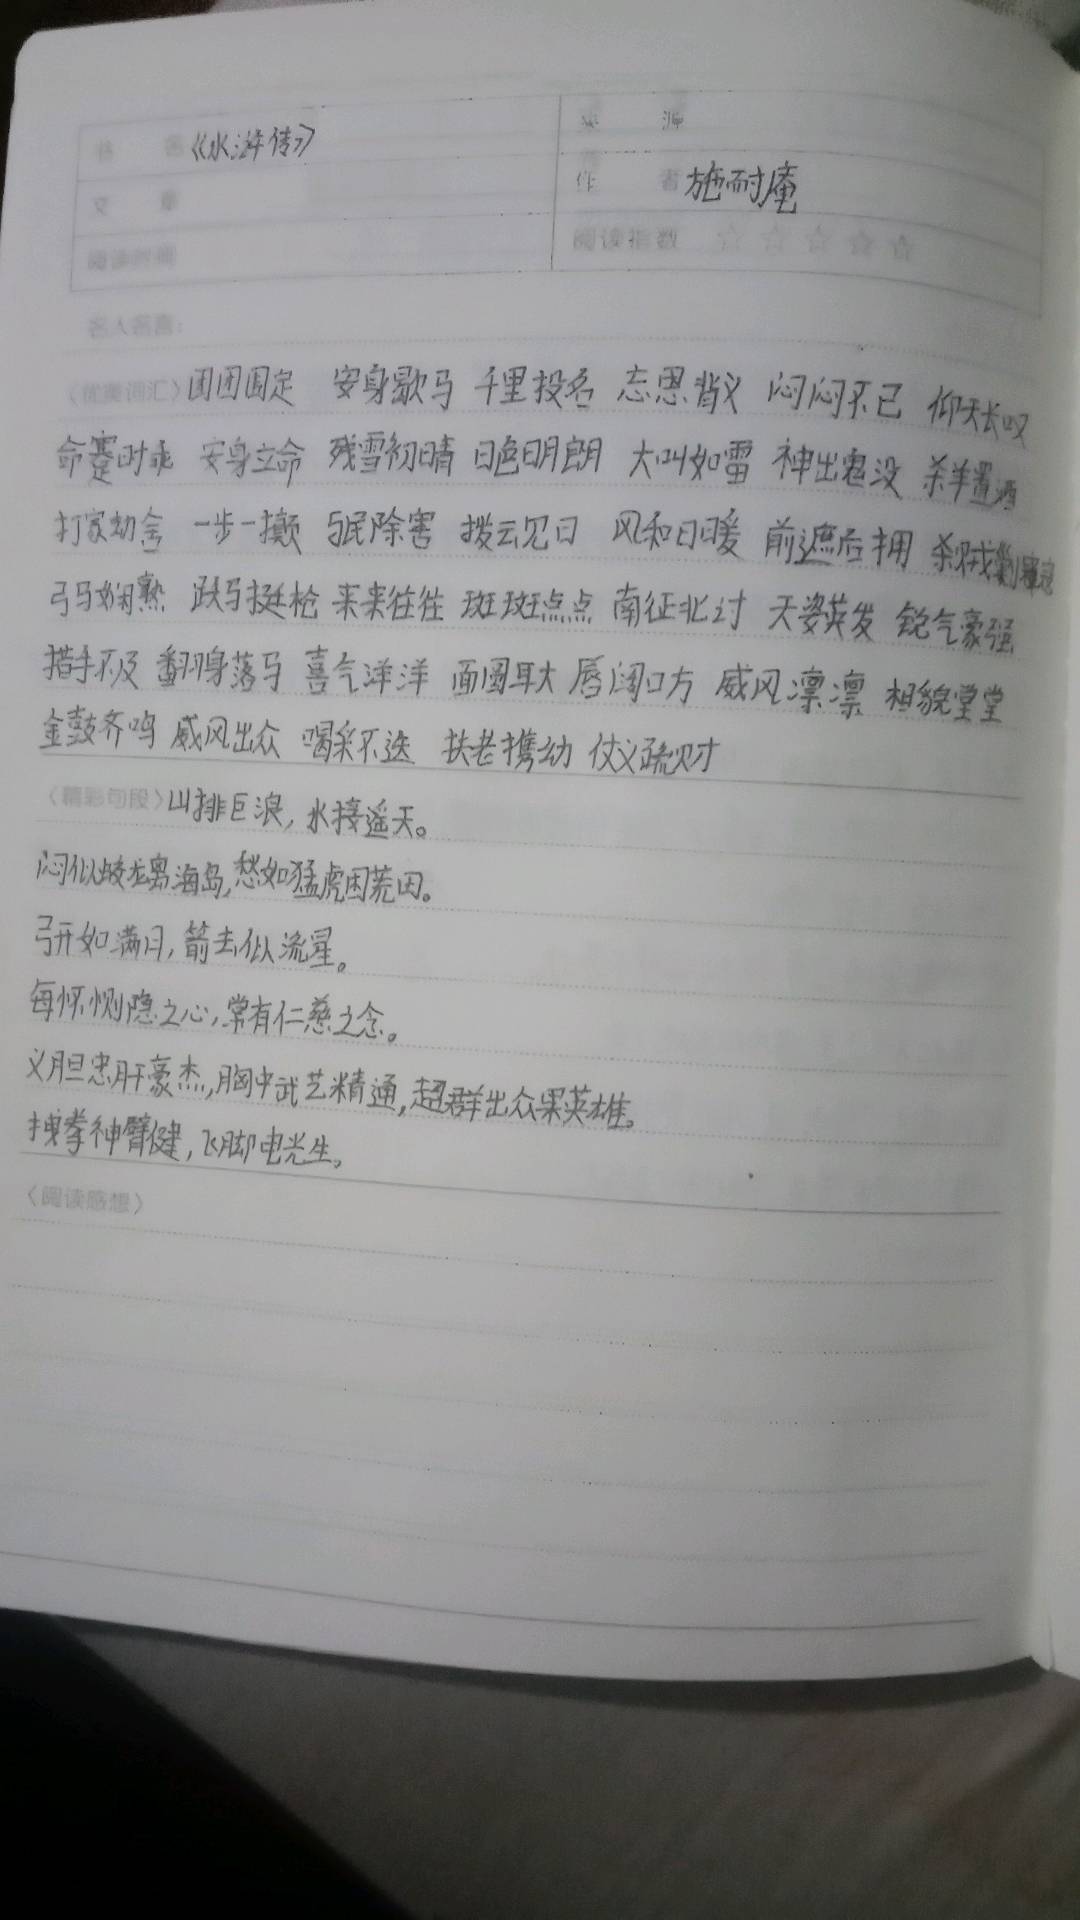 书 名 《水浒传》
来 源
作 者 施耐庵
文 章
阅读时间
阅读指数 ☆ ☆ ☆ ☆ ☆
名人名言：
〈优美词汇〉团团围定 安身歇马 千里投名 忘恩背义 闷闷不已 仰天长叹
命蹇时乖 安身立命 残雪初晴 日色明朗 大叫如雷 神出鬼没 杀羊置酒
打家劫舍 一步一攧 与民除害 拨云见日 风和日暖 前遮后拥 杀贼剿寇
弓马娴熟 跃马挺枪 来来往往 斑斑点点 南征北讨 天姿英发 锐气豪强
措手不及 翻身落马 喜气洋洋 面圆耳大 唇阔口方 威风凛凛 相貌堂堂
金鼓齐鸣 威风出众 喝彩不迭 扶老携幼 仗义疏财
〈精彩句段〉山排巨浪，水接遥天。
闷似蛟龙离海岛，愁如猛虎困荒田。
弓开如满月，箭去似流星。
每怀恻隐之心，常有仁慈之念。
义胆忠肝豪杰，胸中武艺精通，超群出众果英雄。
拽拳神臂健，飞脚电光生。
〈阅读感想〉